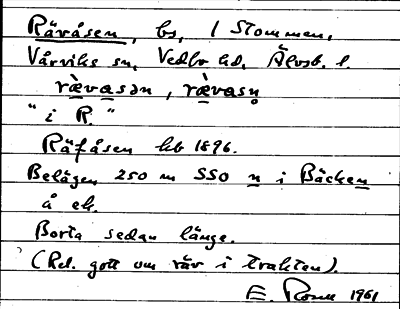 Rävåsen, bs, / Stommen,
Vårviks sn, Vedbo hd, Älvsb. l.
rὲvasən, rὲvasn̥
"i R."
Räfåsen hb 1896.
Belägen 250 m SSO n i Bäcken
å ek.
Borta sedan länge.
(Rel. gott om räv i trakten).
E. 1961